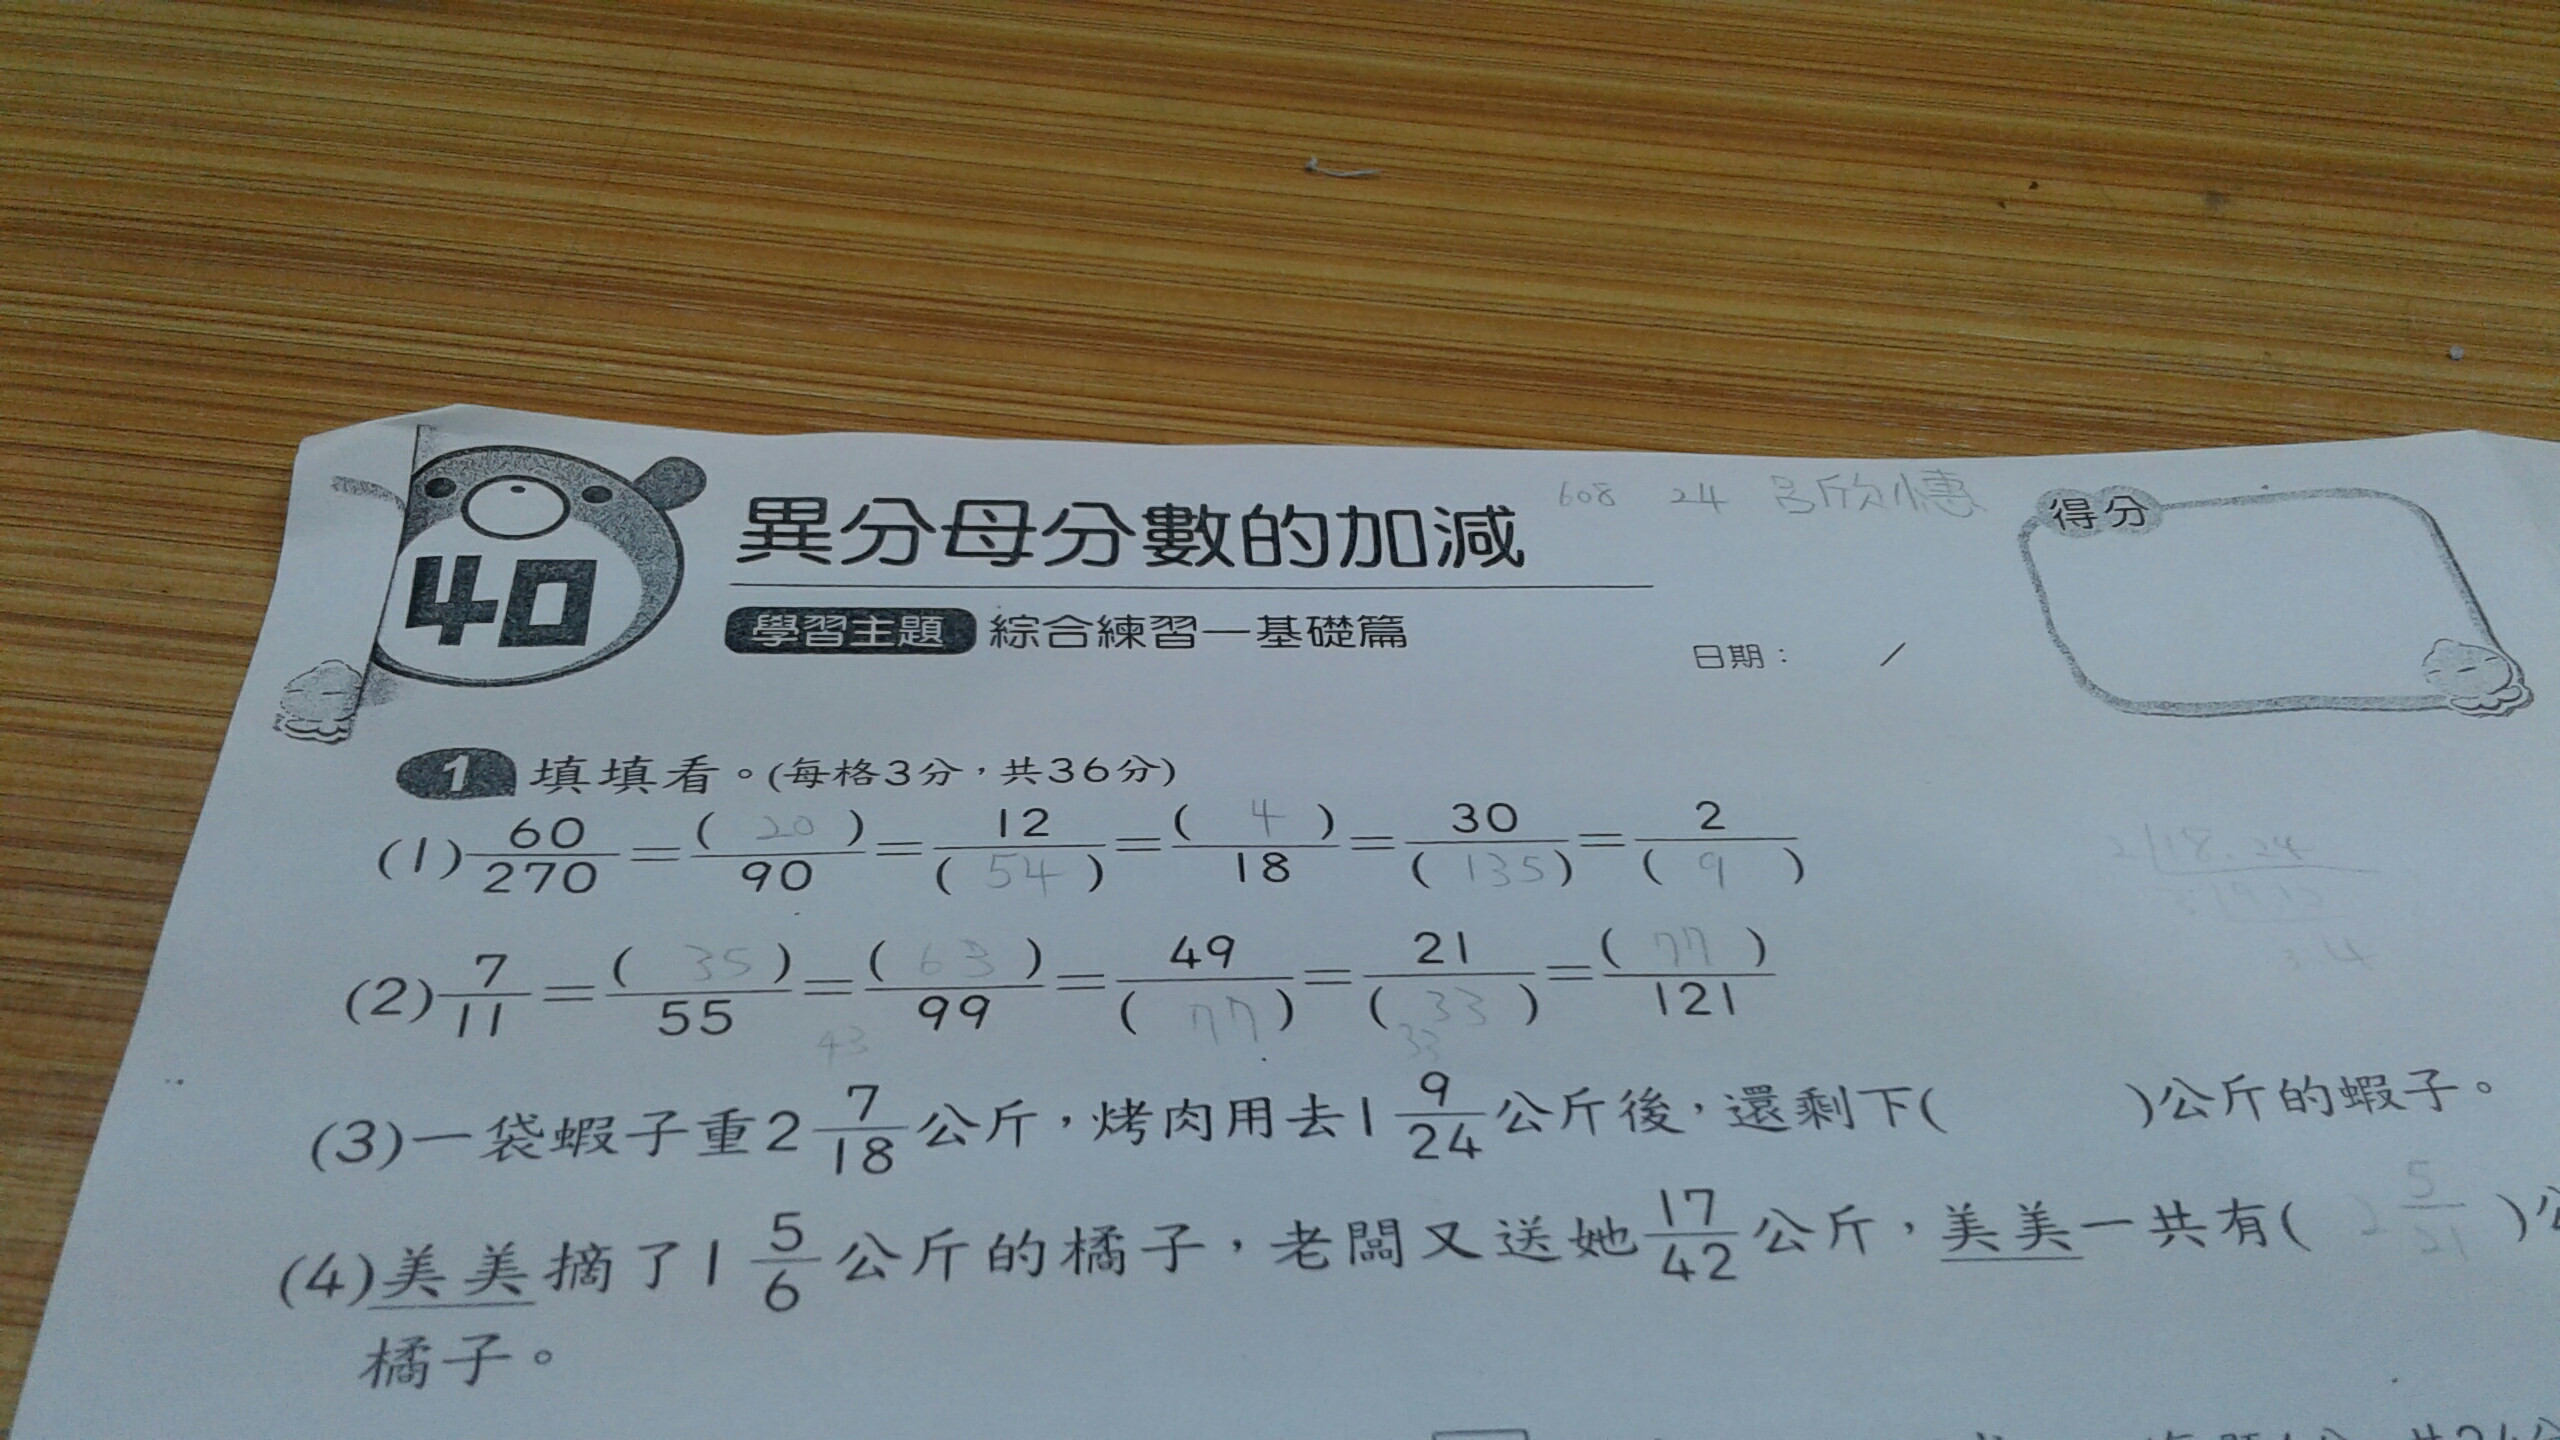 608 24 呂欣憓
40 異分母分數的加減
得分
學習主題 綜合練習—基礎篇
日期： /
1 填填看。(每格3分，共36分)
(1) 60/270 = ( 20 )/90 = 12/( 54 ) = ( 4 )/18 = 30/( 135 ) = 2/( 9 )
2 18, 24
3 4
(2) 7/11 = ( 35 )/55 = ( 63 )/99 = 49/( 77 ) = 21/( 33 ) = ( 77 )/121
43 33
(3)一袋蝦子重2 7/18 公斤，烤肉用去1 9/24 公斤後，還剩下( )公斤的蝦子。
(4)美美摘了1 5/6 公斤的橘子，老闆又送她 17/42 公斤，美美一共有( 2 5/21 )公
橘子。